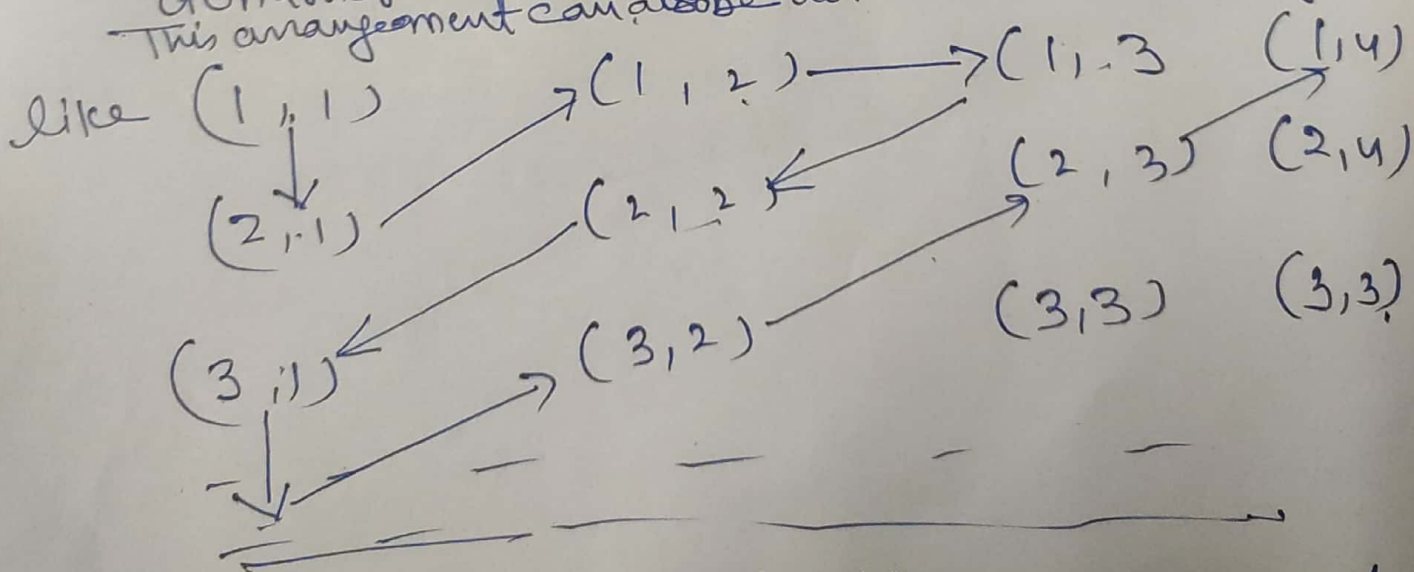 This arrangeoment can
like (1, 1) (1, 2) (1, 3 (1,4)
(2, 1) (2, 2) (2, 3) (2,4)
(3, 1) (3, 2) (3,3) (3,3)